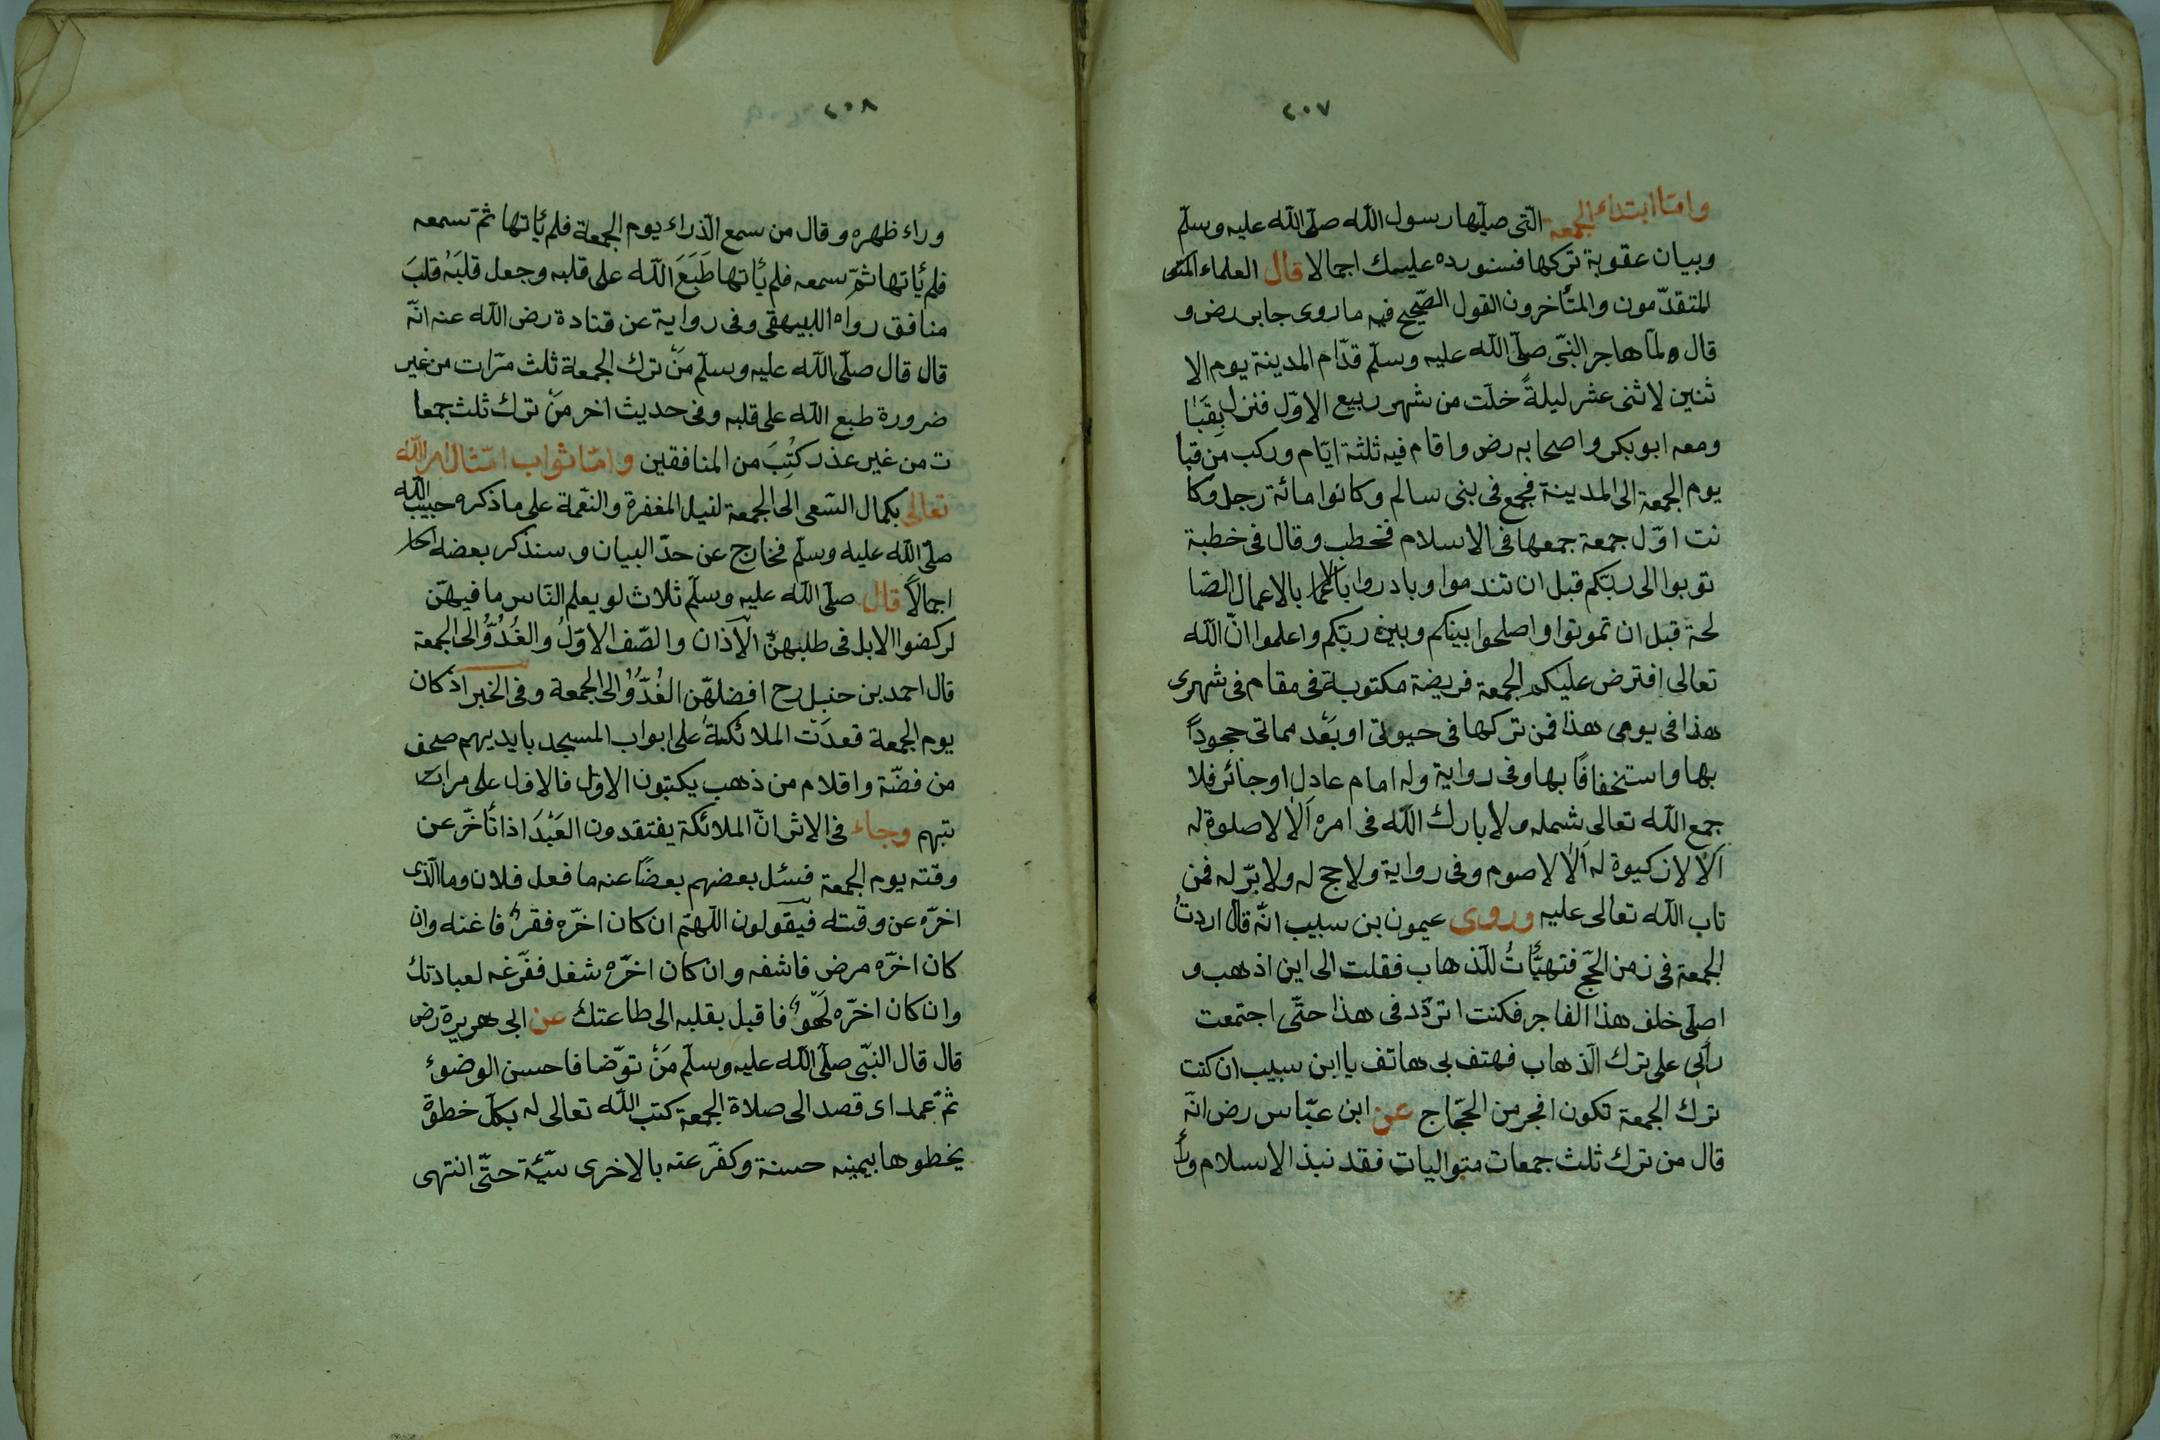 ٢٠٧
وامّا ابتداء الجمعة الّتى صلّيها رسول اللّه صلّى اللّه عليه وسلّم
وبيان عقوبة تركها فسنورده عليك اجمالا قال العلماء
المتقدّمون والمتأخرون القول الصّحيح فيه ما روى جابر رض و
قال ولمّا هاجر النبّى صلّى اللّه عليه وسلّم قدّام المدينة يوم الا
ثنين لاثنى عشر ليلةً خلت من شهر ربيع الاوّل فنزل بِقَبَا
ومعه ابو بكر واصحابه رض واقام فيه ثلثة ايّام وركب مِن قبا
يوم الجمعة الى المدينة فجمع فى بنى سالم وكانوا مائة رجل وكا
نت اوّل جمعة جمعها فى الاسلام فخطب وقال فى خطبة
توبوا الى ربّكم قبل ان تندموا وبادروا بالاعمال الصّا
لحة قبل ان تموتوا واصلحوا بينكم وبين ربّكم واعلموا انّ اللّه
تعالى افترض عليكم الجمعة فريضة مكتوبة فى مقام فى شهرى
هذا فى يومى هذا فمن تركها فى حيوتى او بَعْد مماتى جحودًا
بها واستخفافًا بها وفى رواية وله امام عادل او جائر فلا
جمع اللّه تعالى شمله ولا بارك اللّه فى امره اَلاٰ لا صلوة له
اَلاٰ لا زكيوة له اَلاٰ لا صوم وفى رواية ولا حج له ولا برّ له فمن
تاب اللّه تعالى عليه وروى عيمون بن سبيب انّه قال اردتُ
الجمعة فى زمن الحّج فتهيّأتُ للّذهاب فقلت الى اين اذهب و
اصلّى خلف هذا الفاجر فكنت اتردّد فى هذا حتّى اجتمعت
رأيى على ترك الّذهاب فهتف بى هاتف يا ابن سبيب ان كنت
ترك الجمعة تكون افجر من الحجّاج عن ابن عبّاس رض انّه
قال من ترك ثلث جمعات متواليات فقد نبذ الاسلام
٢٠٨
وراء ظهره وقال من سمع الّذراء يوم الجمعة فلم يأتها ثمّ سمعه
فلم يأتها ثمّ سمعه فلم يأتها طَبَعَ اللّه على قلبه وجعل قلبَهُ قلبَ
منافق رواه اللبيهقى وفى رواية عن قتادة رض اللّه عنه انّه
قال قال صلّى اللّه عليه وسلّم مَنْ ترك الجمعة ثلث مرّات من غير
ضرورة طبع اللّه على قلبه وفى حديث اخر مَنْ ترك ثلث جمعا
ت من غير عذر كُتِبَ من المنافقين وامّا ثواب امتثال امر اللّه
تعالى بكمال السّعى الى الجمعة لنيل المغفرة والنّعمة على ما ذكره حبيب اللّه
صلّى اللّه عليه وسلّم فخارج عن حدّ البيان وسنذكر بعضه
اجمالاً قال صلّى اللّه عليه وسلّم ثلاث لو يعلم النّاس ما فيهنّ
لركضوا الابل فى طلبهنّ الّآذان والصّف الاوّلُ والغُدُوُّ الى الجمعة
قال احمد بن حنبل رح افضلهّن الغُدُّوُ الى الجمعة وفى الخبر اذ كان
يوم الجمعة قعدَتْ الملائكةُ على ابواب المسجد بايديهم صحف
من فضّة واقلام من ذهب يكتبون الاوّل فالاول على مرات
تبهم وجاء فى الاثر انّ الملائكة يفتقدون العَبْدَ اذا تأخّر عن
وقته يوم الجمعة فسئل بعضهم بعضًا عنه ما فعل فلان وما الّذى
اخرّه عن وقته فيقولون اللّهمّ ان كان اخرّه فقرٌ فاغنه وان
كان اخرّه مرض فاشفه وان كان اخرّه شغل ففرّغه لعبادتك
وان كان اخرّه لَهْوٌ فاقبل بقلبه الى طاعتك عن ابى هريرة رض
قال قال النبّى صلّى اللّه عليه وسلّم مَنْ توّضا فاحسن الوضوء
ثمّ عمد اى قصد الى صلاة الجمعة كتب اللّه تعالى له بكلّ خطوة
يخطوها بيمينه حسنة وكفّر عنه بالاخرى سّيّئة حتّى انتهى